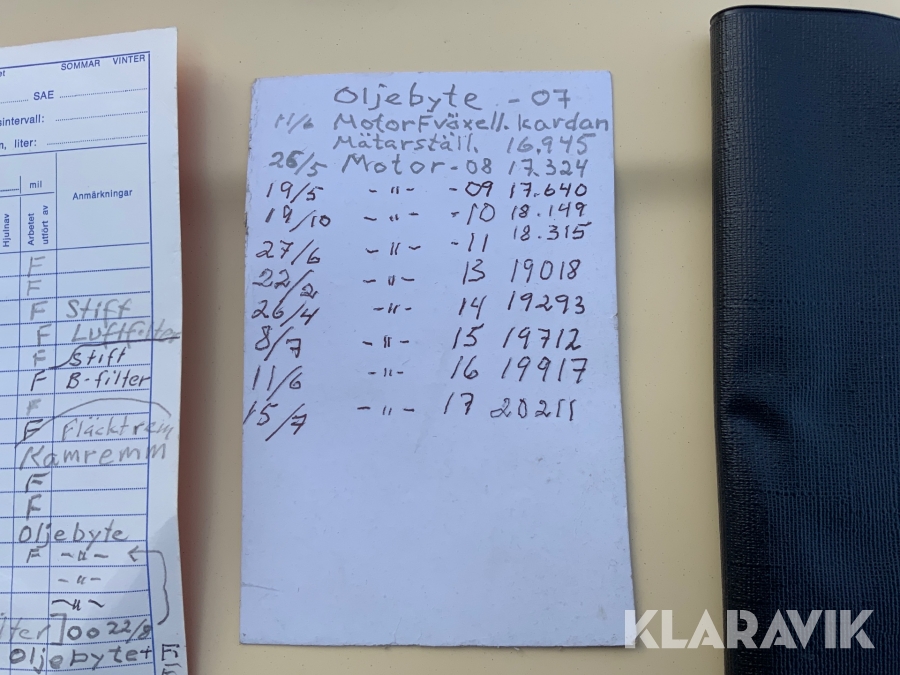 SOMMAR VINTER
SAE
sintervall:
m, liter:
mil
Anmärkningar
Hjulnav
Arbetet utfört av
F
F
F Stift
F Luftfilter
F Stift
F B-filter
F
F Fläktrem
Kamremm
F
F
Oljebyte
F -"-
-"-
-"-
filter] 00 22/8
Oljebytet
Oljebyte -07
11/6 Motor Fväxell. Kardan
Mätarställ. 16.945
26/5 Motor -08 17.324
19/5 -"- -09 17.640
19/10 -"- -10 18.149
27/6 -"- -11 18.315
22/2 -"- 13 19018
26/4 -"- 14 19293
8/7 -"- 15 19712
11/6 -"- 16 19917
15/7 -"- 17 20211
KLARAVIK